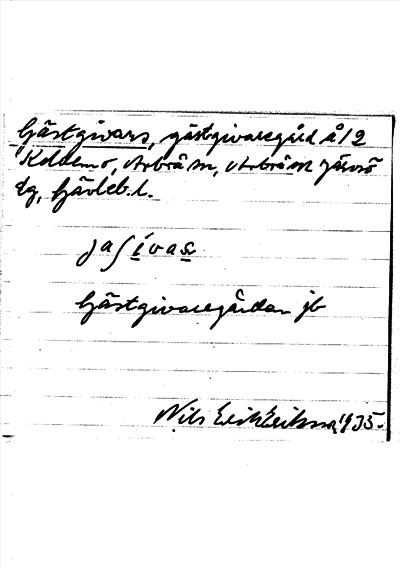 Gästgivars, gästgivaregård å 1/2
Koldemo, Arbrå sn, Arbrå o Järvsö
tg, Gävleb. l.
jaʃivas
Gästgivaregården jb
Nils Erik Eriksson 1935.